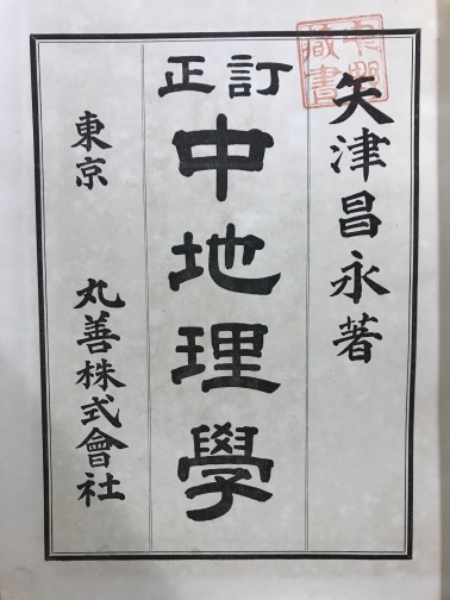 矢津昌永著
訂正
中地理學
東京　丸善株式會社